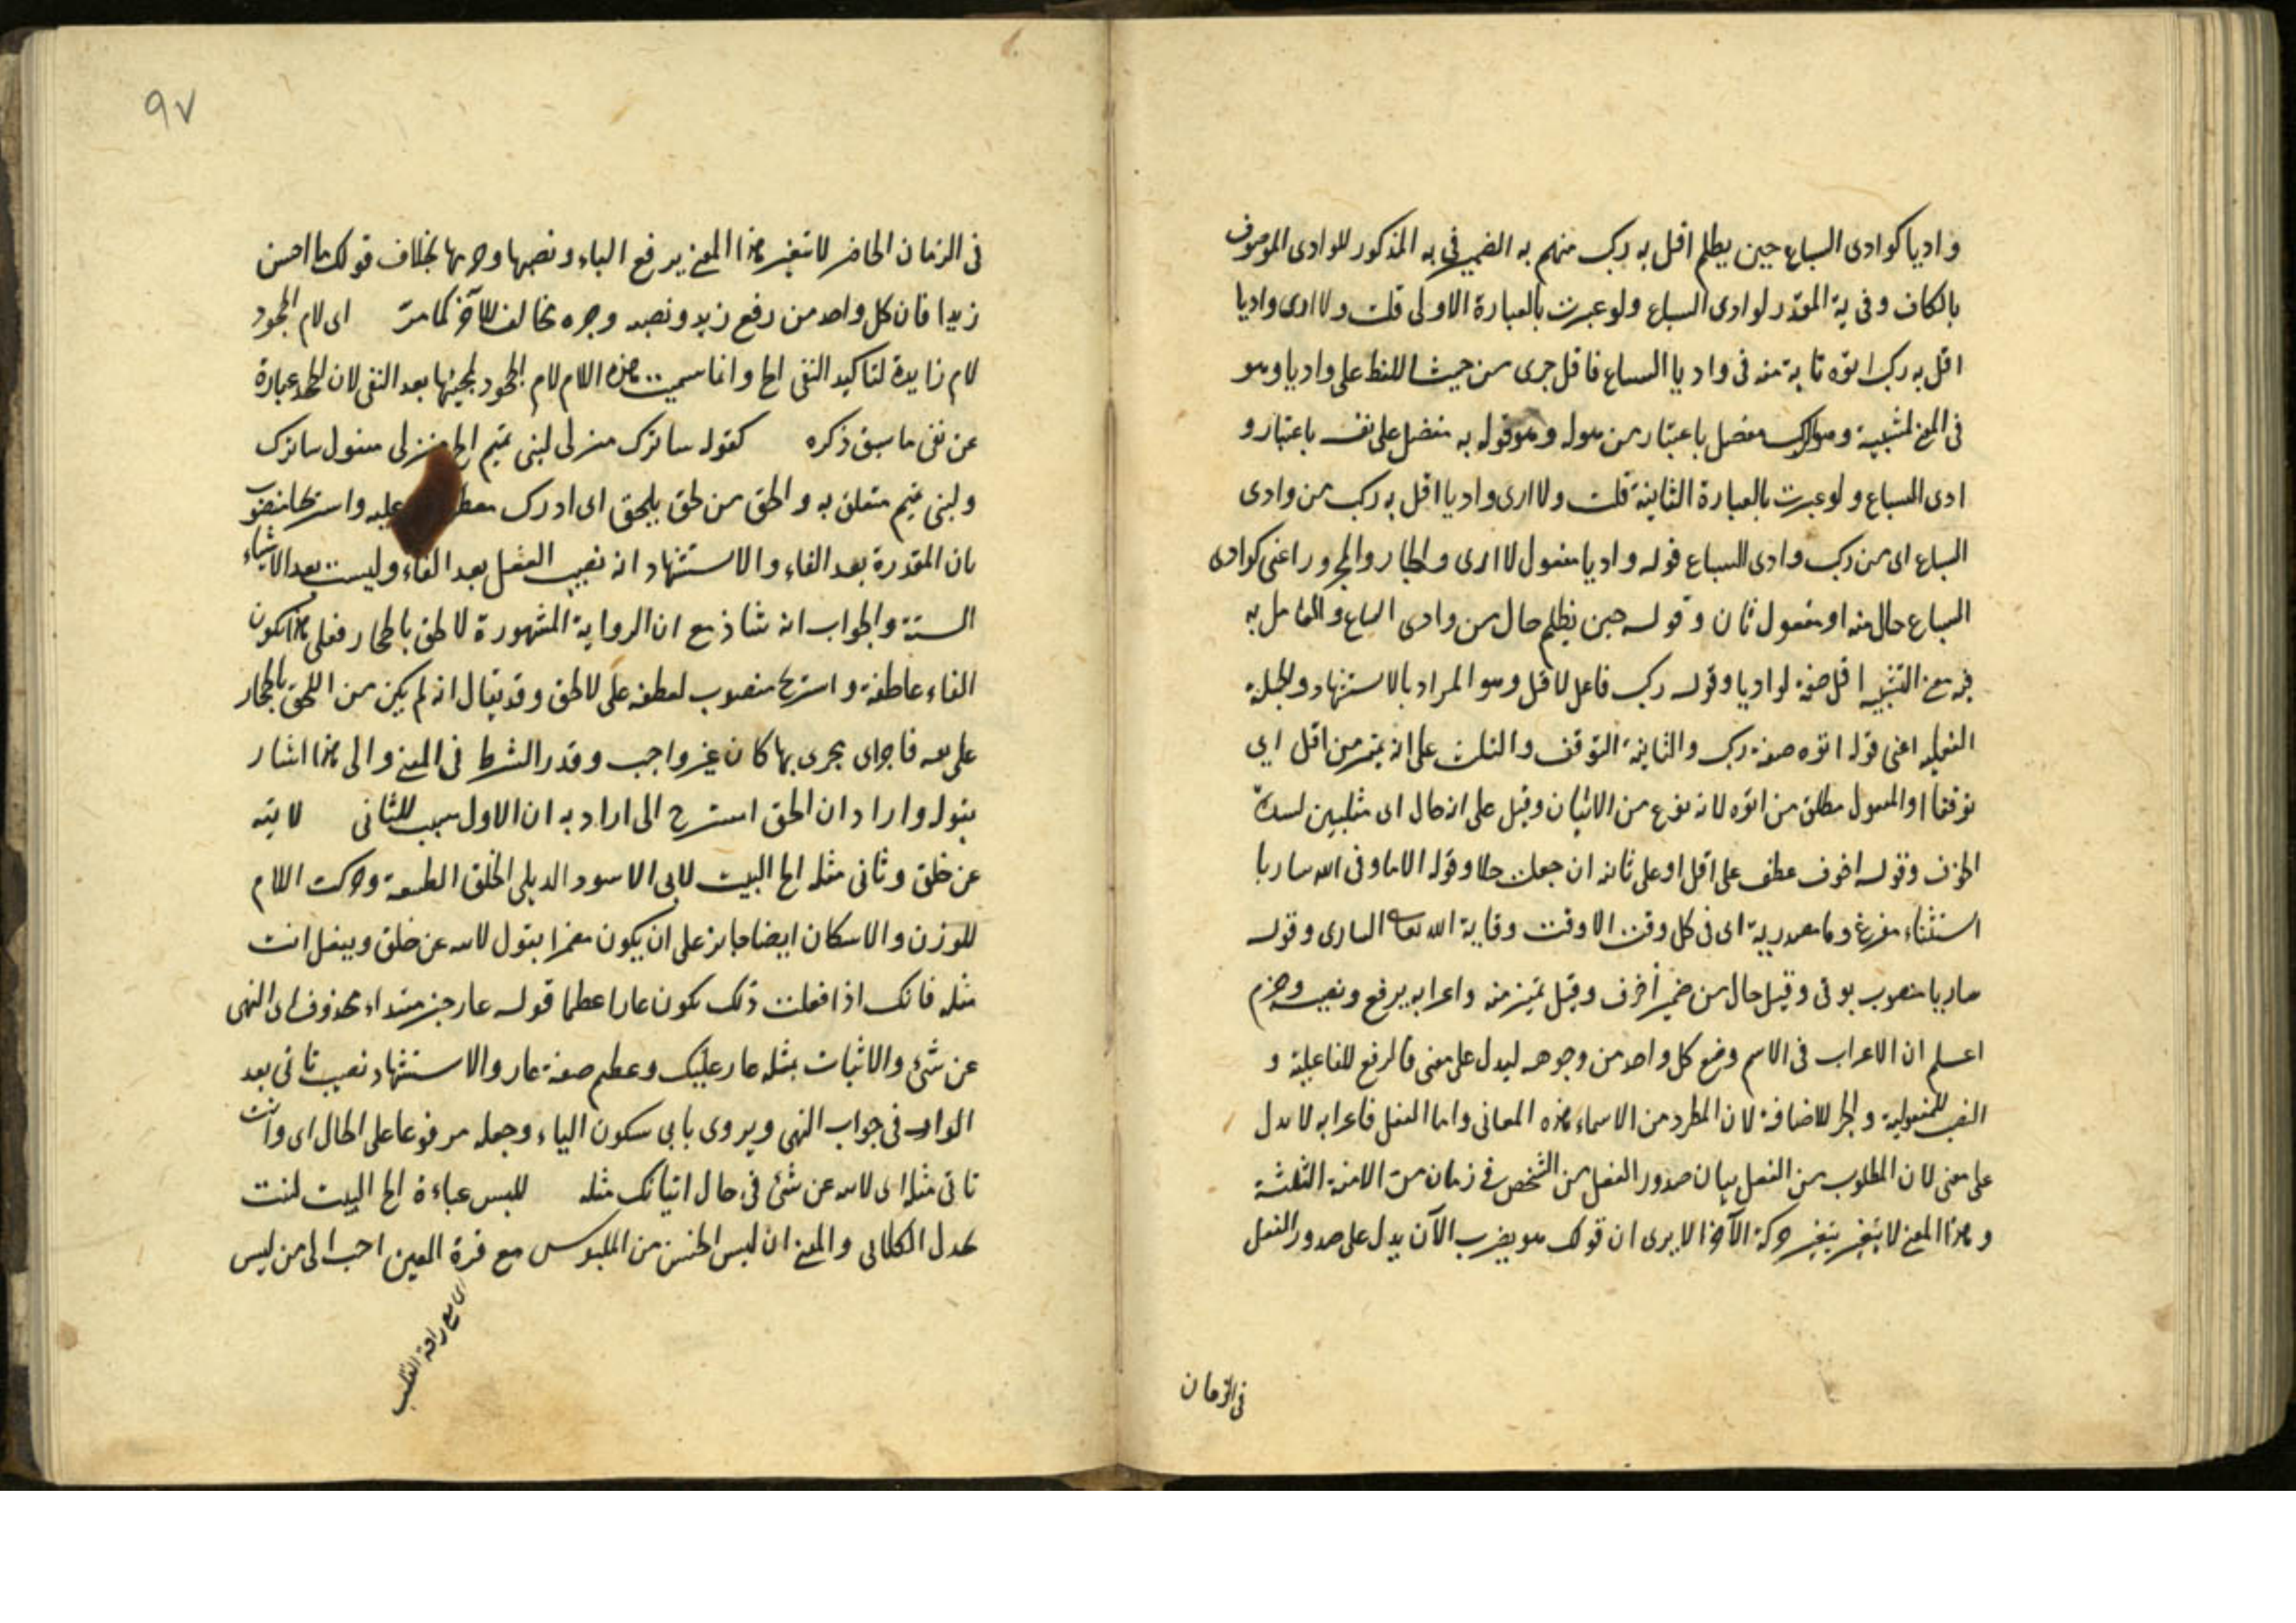 واديا كوادى السباع حين يظلم اقل به ركب منهم به الضمير فى به المذكور للوادى الموصوف
بالكاف وفى به المقدر لوادى السباع ولو عبرت بالعبارة الاولى قلت ولا ارى واديا
اقل به ركب اتوه تاية منه فى واديا السباع فاقل جرى من حيث اللفظ على واديا وهو
فى المعنى لمسببه وهو ركب مفضل باعتبار من هوله وهو قوله به مفضل على نفسه باعتبار و
ادى السباع ولو عبرت بالعبارة الثانية قلت ولا ارى واديا اقل به ركب من وادى
السباع اى من ركب وادى السباع قوله واديا مفعول لا ارى والجار والمجرور اعنى كوادى
السباع حال منه او مفعول ثان وقوله حين يظلم حال من وادى السباع والعامل به
فيه معنى التشبيه اقل صفة لواديا وقوله ركب فاعل لاقل وهو المراد بالاستشهاد والجملة
الفعلية اعنى قوله اتوه صفة ركب والتائية التوقف والتلبث على انه تميز من اقل اي
توقفا او المفعول مطلق من اتوه لانه نوع من الاتيان وقيل على انه حال اى متلبين لشدة
الخوف وقوله اخوف عطف على اقل او على تائيه ان جعلت حالا وقوله الا ما وقى الله ساريا
استثناء مفرغ وما مصدرية اى فى كل وقت الا وقت وقاية الله تعالى السارى وقوله
ساريا منصوب بوقى وقيل حال من ضمير أخوف وقيل تميز منه واعرابه برفع ونصب وجزم
اعلم ان الاعراب فى الاسم وضع كل واحد من وجوهه ليدل على معنى فالرفع للفاعلية و
النصب للمفعولية والجر للاضافة لان المطرد من الاسماء هذه المعانى واما الفعل فاعرابه لا يدل
على معنى لان المطلوب من الفعل بيان صدور الفعل من الشخص فى زمان من الازمنة الثلثة
وهذا المعنى لا يتغير بتغير حركة الآخر الا يرى ان قولك هو يضرب الآن يدل على صدور الفعل
فى الزمان
٩٧
فى الزمان الحاضر لا يتغير هذا المعنى برفع الباء ونصبها وجرها بخلاف قولك ما احسن
زيدا فان كل واحد من رفع زيد ونصبه وجره مخالف للآخر كما مر اى لام الجحود
لام زايدة لتاكيد النفى الخ وانما سميت هذه اللام لام الجحود لمجيئها بعد النفى لان الجحد عبارة
عن نفى ما سبق ذكره كقوله ساترك منزلى لبنى تميم الخ منزلى مفعول ساترك
ولبنى تميم متعلق به والحق من لحق يلحق اى ادرك معطوف عليه واستريحا منصوب
بان المقدرة بعد الفاء والاستشهاد انه نصب الفعل بعد الفاء وليست بعد الاشياء
الستة والجواب انه شاذ مع ان الرواية المشهورة لالحق بالحجاز فعلى هذا يكون
الفاء عاطفة واستريح منصوب لعطفه على لالحق وقد يقال انه لم يكن من اللحق بالحجاز
على يعه فاجراى مجرى بها كان غير واجب وقدر الشرط فى المعنى والى هذا اشار
بقوله واراد ان الحق استرح الى اراد به ان الاول سبب للثانى لا تنه
عن خلق وثانى مثله الخ البيت لابى الاسود الديلى الخلق الطبيعة وحركت اللام
للوزن والاسكان ايضا جايز على ان يكون مفردا يقول لا تنه عن خلق ويفعل انت
مثله فانك اذا فعلت ذلك يكون عارا عظيما قوله عار خبر مبتداء محذوف اى النهى
عن شئ والاتيان بمثله عار عليك وعظيم صفة عار والاستشهاد نصب تأتى بعد
الواو فى جواب النهى ويروى باتى سكون الياء وجعله مرفوعا على الحال اى وانت
تاتى مثله اى لا تنه عن شئ فى حال اتيانك مثله للبس عباءة الخ البيت لبنت
بحدل الكلابى والمعنى ان لبس الخشن من الملبوس مع قرة العين احب الى من لبس
اى مع راحة القلب